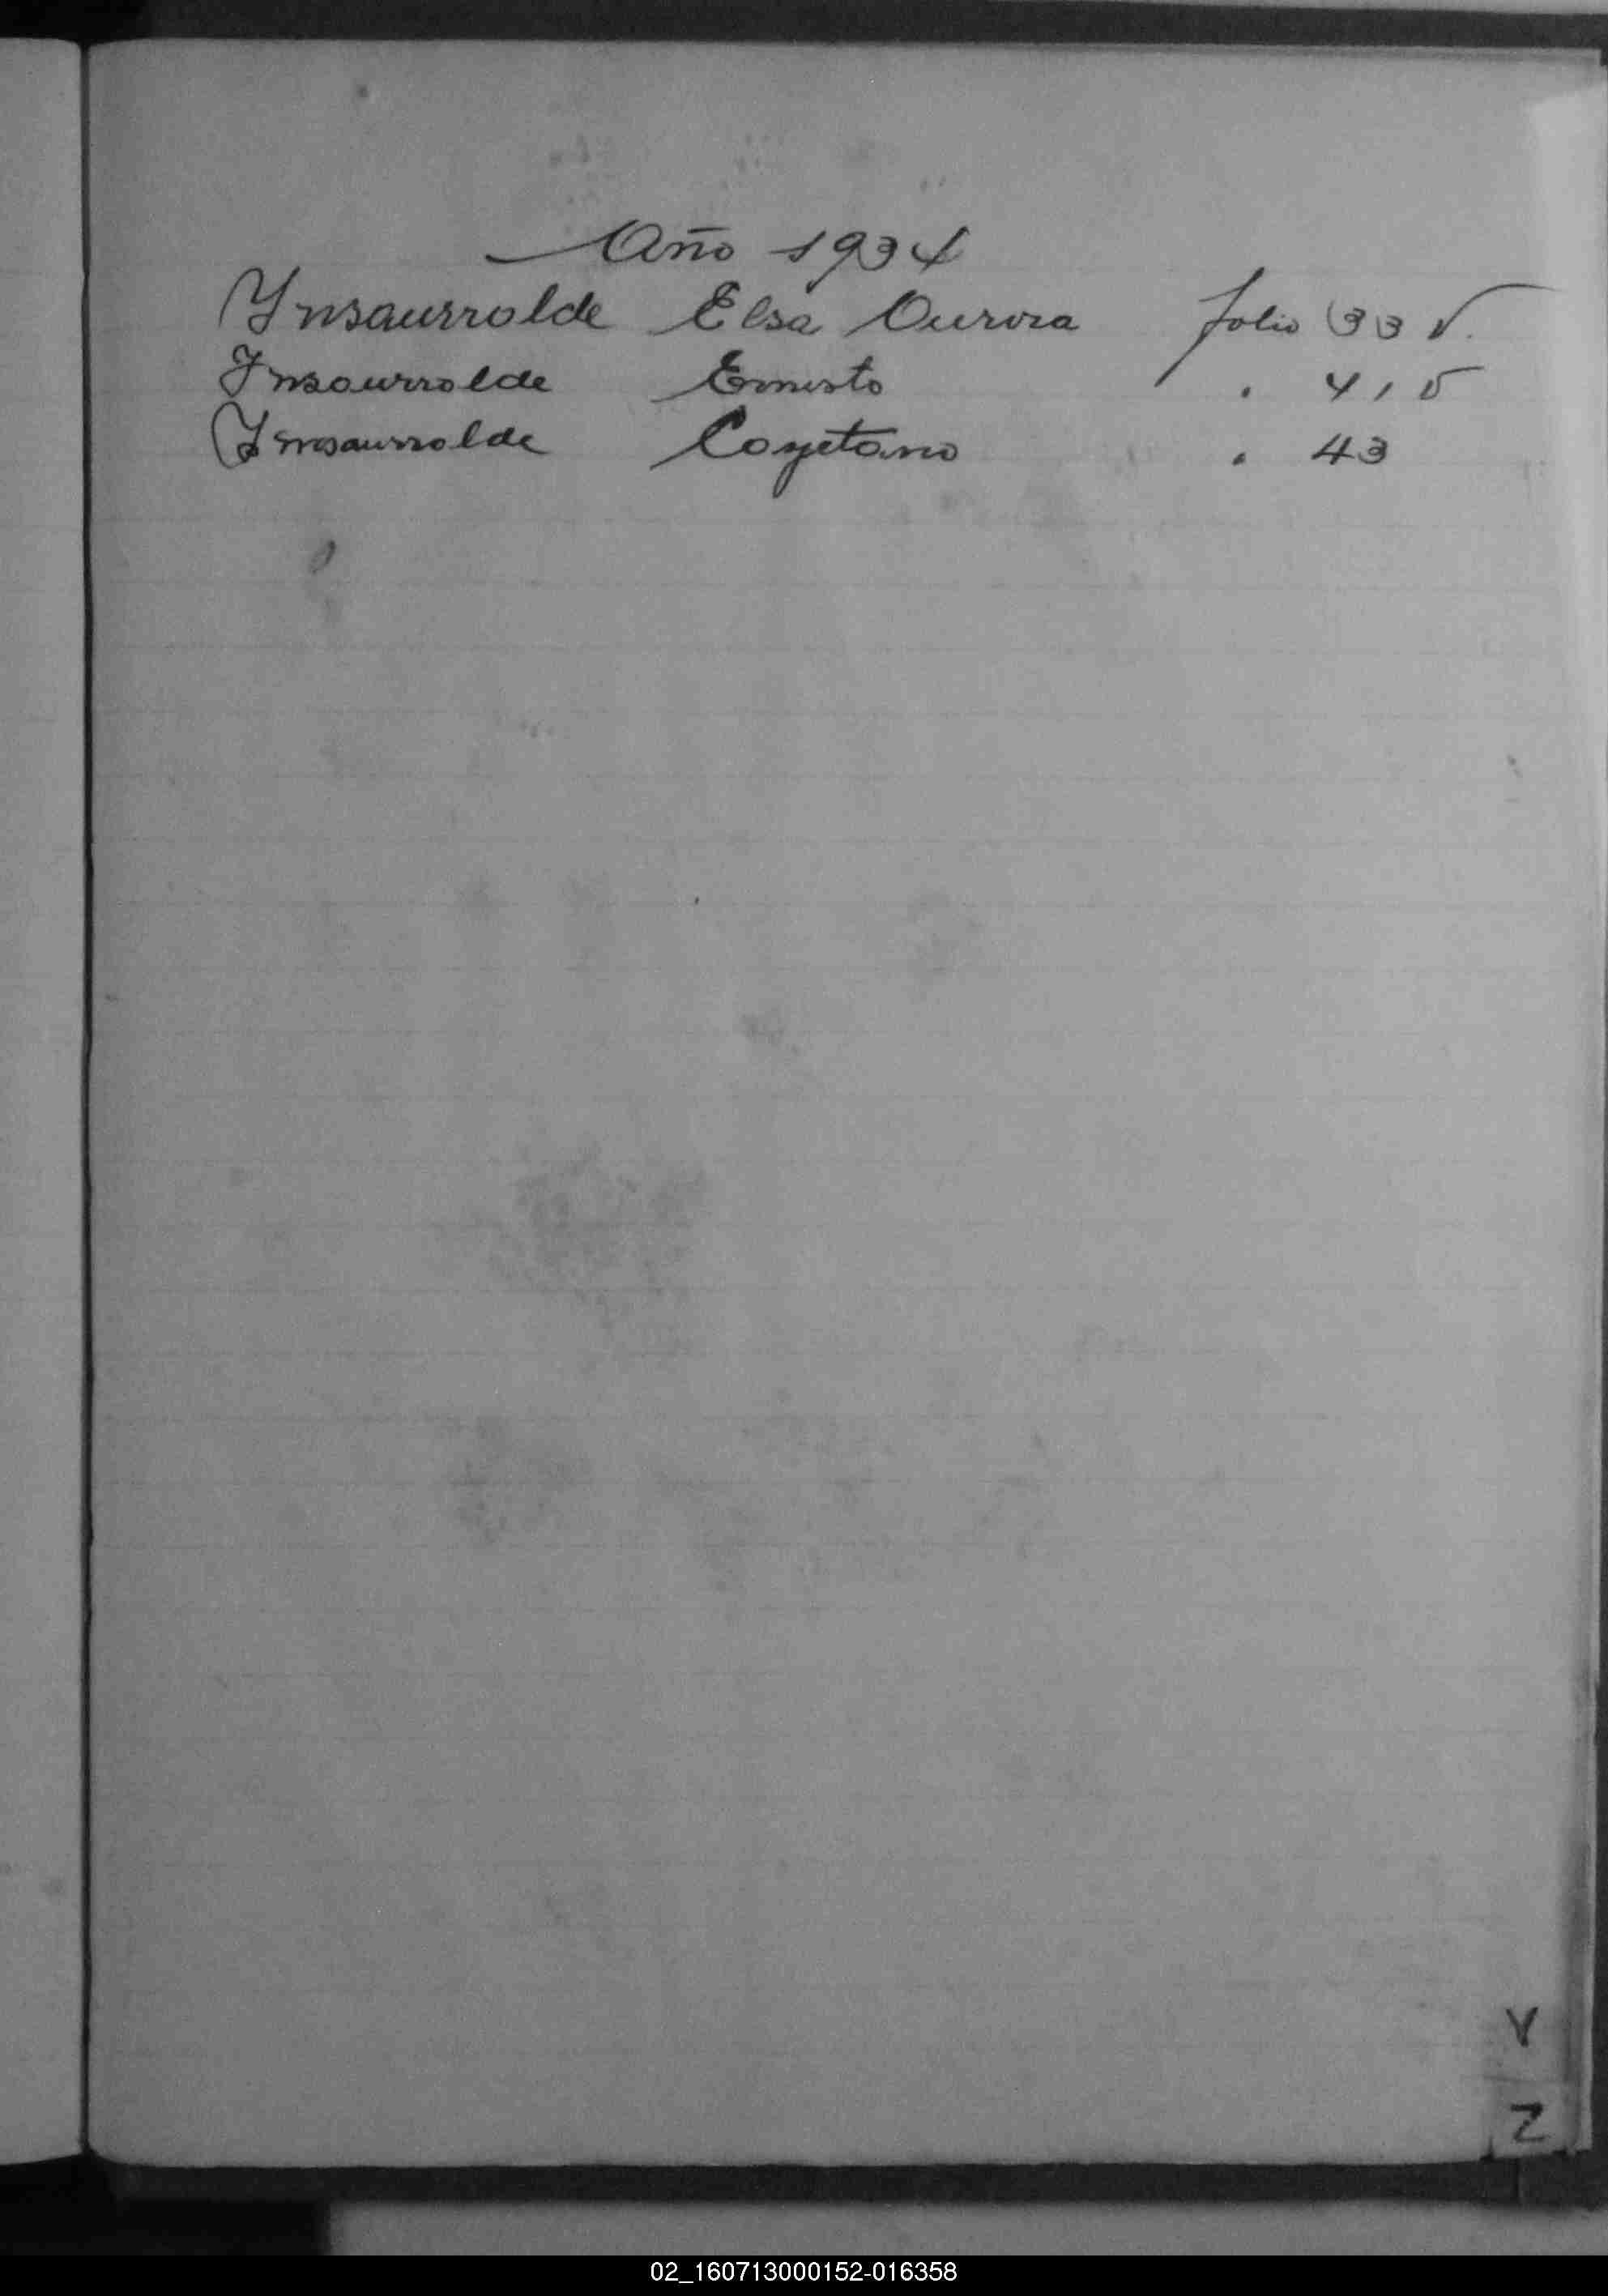 Año 1934
Ynsaurralde Elsa Aurora folio 33 v.
Ynsaurralde Ernesto " 41 v
Ynsaurralde Cayetano " 43
Y
Z
02_160713000152-016358